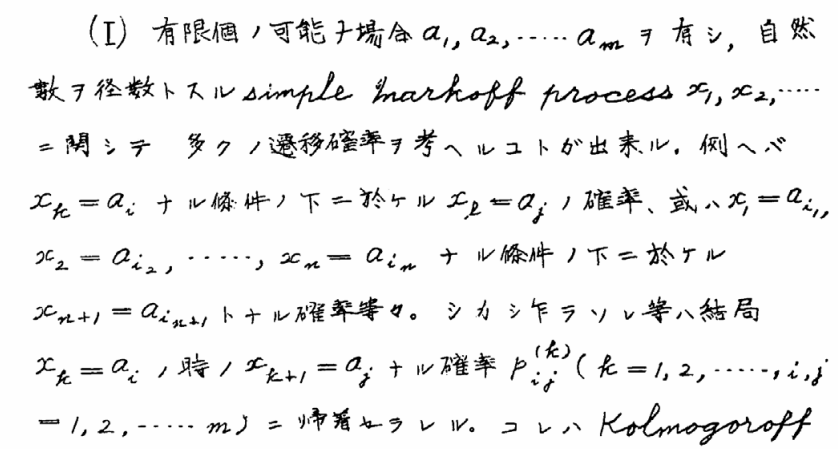 (I) 有限個ノ可能ナ場合 a₁, a₂, ····· aₘ ヲ有シ, 自然
数ヲ径数トスル simple Markoff process x₁, x₂, ·····
ニ関シテ 多クノ遷移確率ヲ考ヘルコトガ出来ル. 例ヘバ
x_k = a_i ナル條件ノ下ニ於ケル x_l = a_j ノ確率、或ハ x₁ = a_{i₁},
x₂ = a_{i₂}, ·····, x_n = a_{i_n} ナル條件ノ下ニ於ケル
x_{n+1} = a_{i_{n+1}} トナル確率等々。シカシ乍ラソレ等ハ結局
x_k = a_i ノ時ノ x_{k+1} = a_j ナル確率 p_{ij}^{(k)} ( k = 1, 2, ·····, i, j
= 1, 2, ····· m) ニ帰着セラレル. コレハ Kolmogoroff